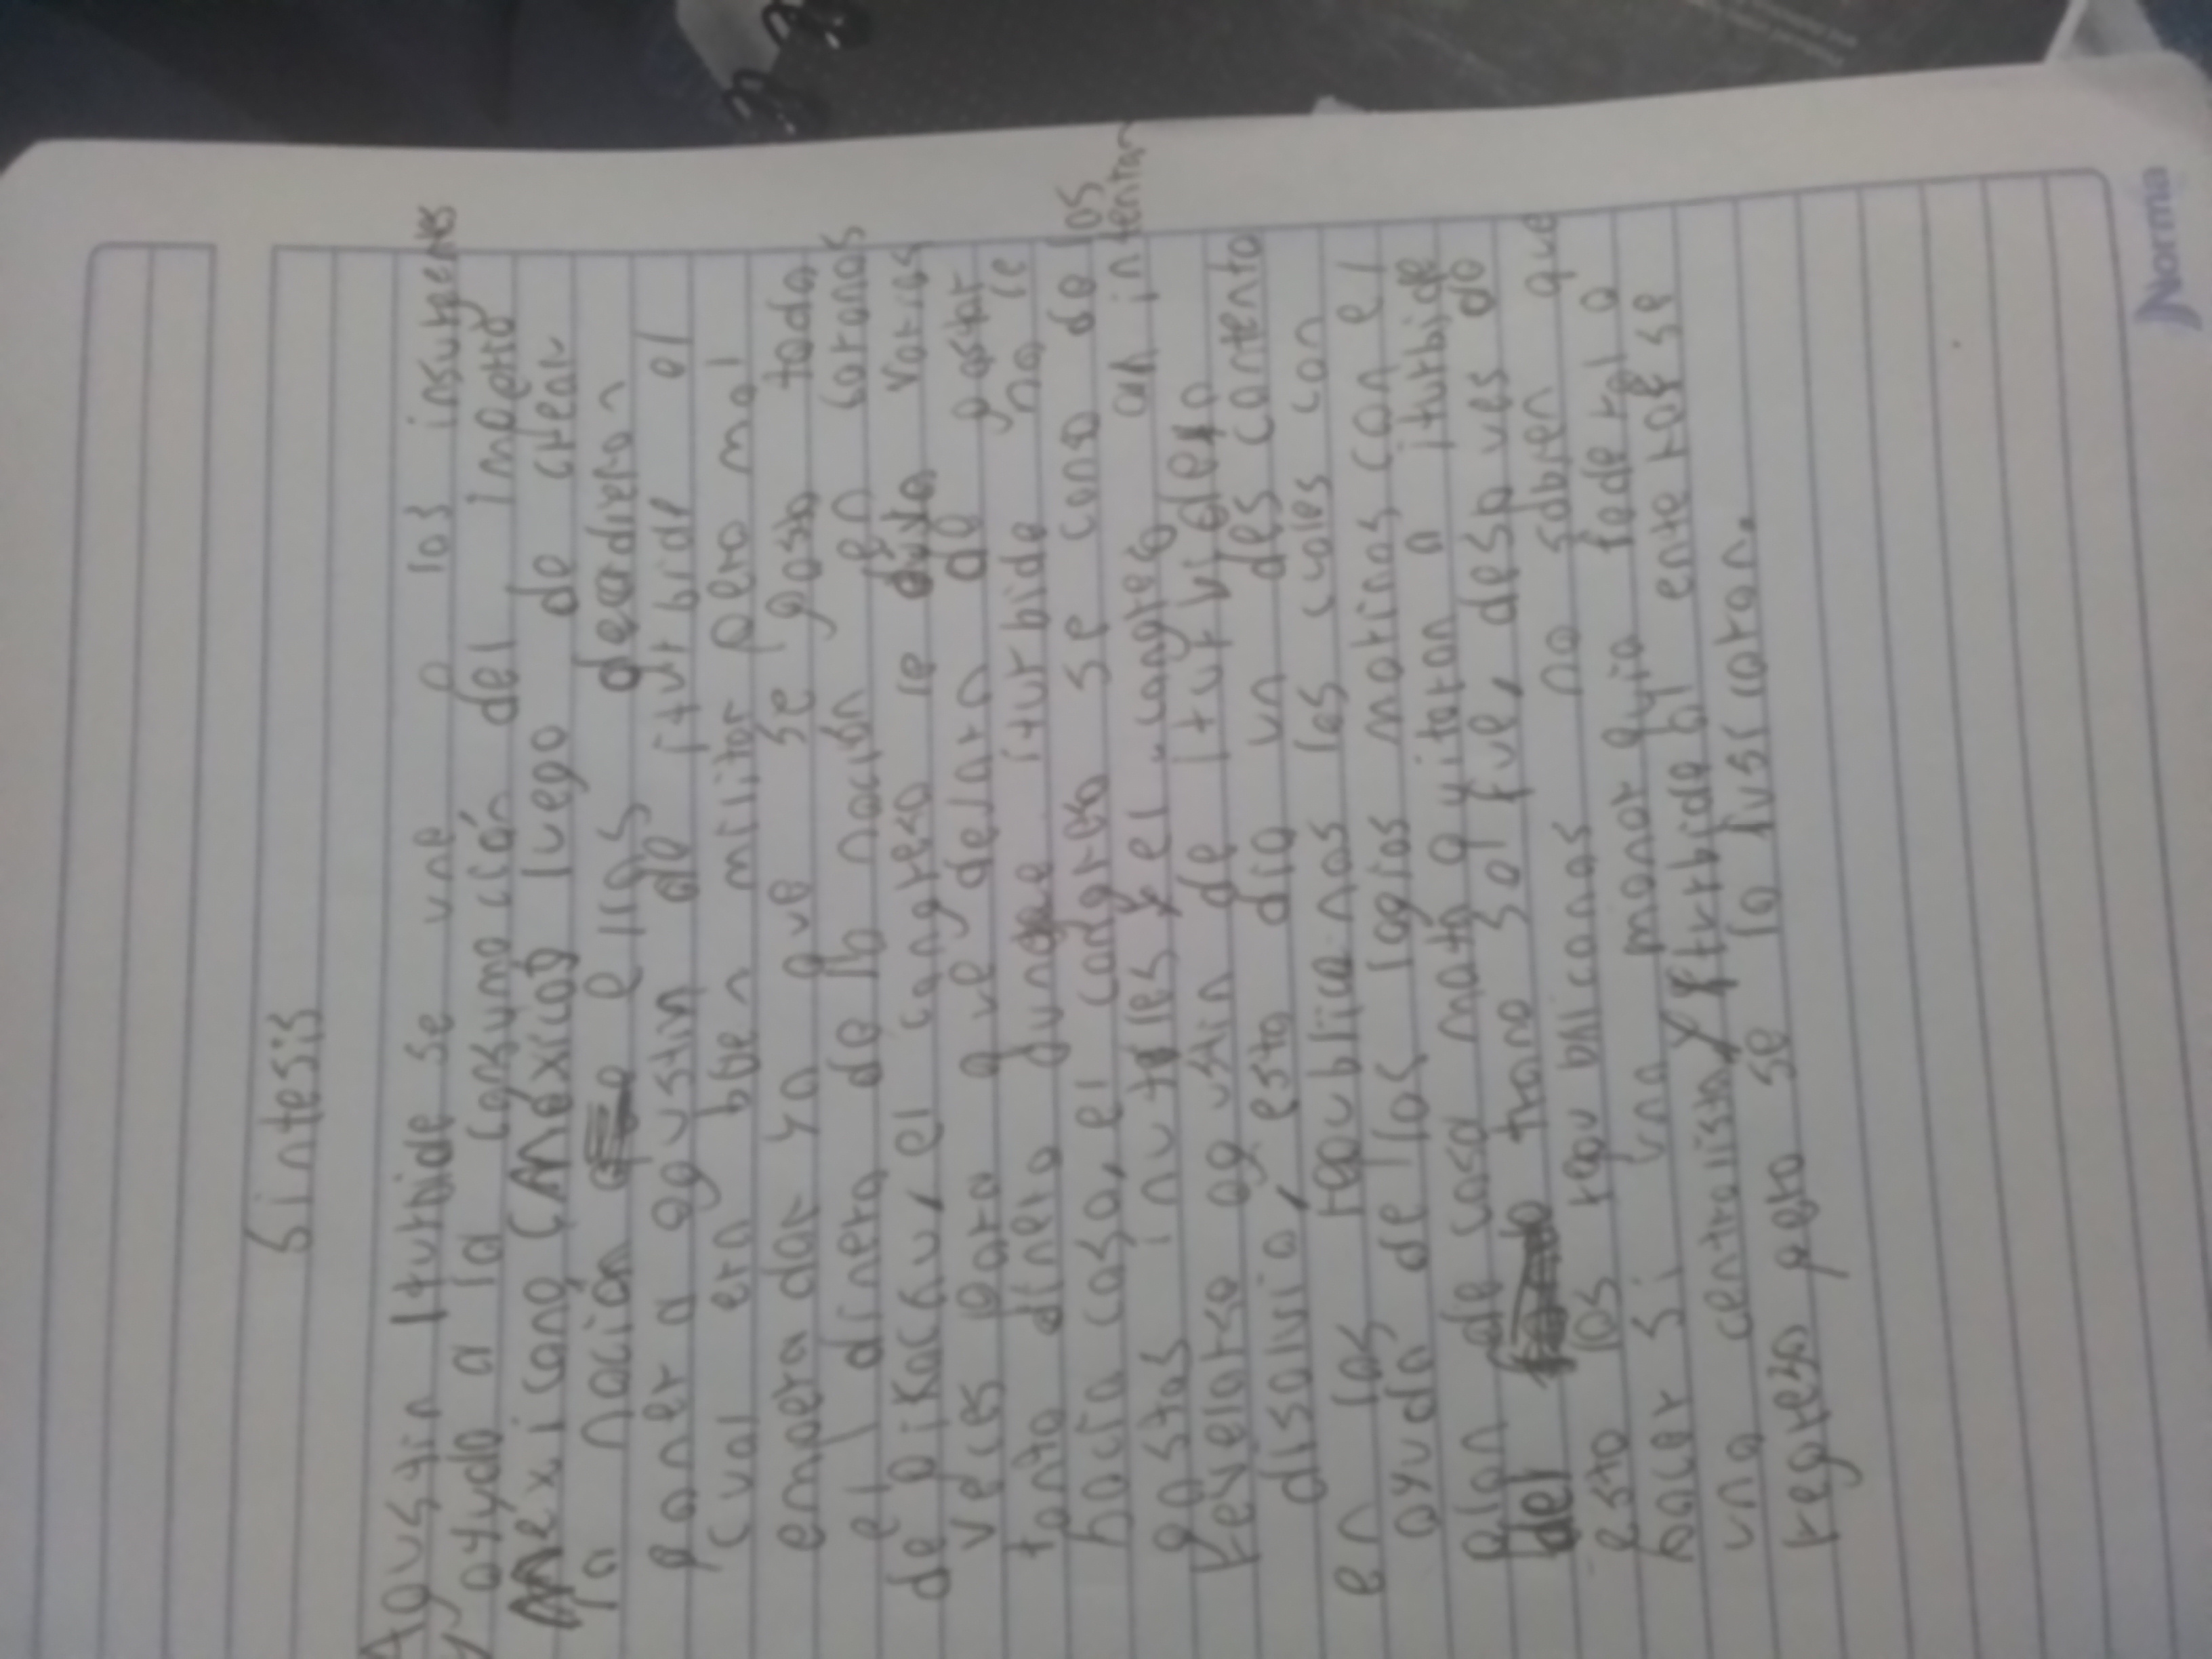 Sintesis
Agustin Iturbide se une a los insurgenes
y ayudo a la consumación del imperio
Mexicano (México) luego de crear
la nación ellos decidieron
poner a agustin de iturbide el
cual era buen militar pero mal
emperador ya que se gasto todo
el dinero de la nación en coronas
de pikachu, el congreso le dijo varias
veces para que dejara de gastar
tanto dinero aunque iturbide no le
hacia caso, el congreso se canso de los
gastos inutiles y el congreso al intentar
revelarse agustin de iturvide lo
disolvio, esto dio un descontento
en los republicanos los cuales con
ayuda de las logias masonicas con el
plan de casa mata quitaron a iturbide
del trono sel fue, despues de
esto los republicanos no sabien que
hacer si una monarquia federal o
una centralista, Iturbide al enterarse
regreso pero se lo fusilaron.
Norma